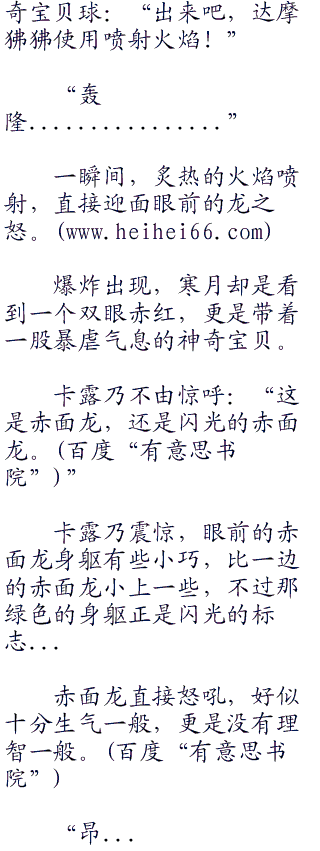 奇宝贝球：“出来吧，达摩
狒狒使用喷射火焰！”
“轰
隆................”
一瞬间，炙热的火焰喷
射，直接迎面眼前的龙之
怒。(www.heihei66.com)
爆炸出现，寒月却是看
到一个双眼赤红，更是带着
一股暴虐气息的神奇宝贝。
卡露乃不由惊呼：“这
是赤面龙，还是闪光的赤面
龙。(百度“有意思书
院”)”
卡露乃震惊，眼前的赤
面龙身躯有些小巧，比一边
的赤面龙小上一些，不过那
绿色的身躯正是闪光的标
志...
赤面龙直接怒吼，好似
十分生气一般，更是没有理
智一般。(百度“有意思书
院”)
“昂...